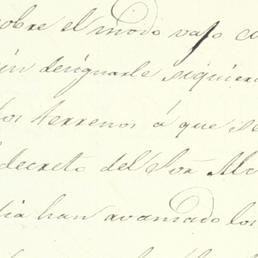 sobre el modo vajo c
ún designarle siquiera
los terrenos á que se
decreto del Sor Alc
dia han avanzado los